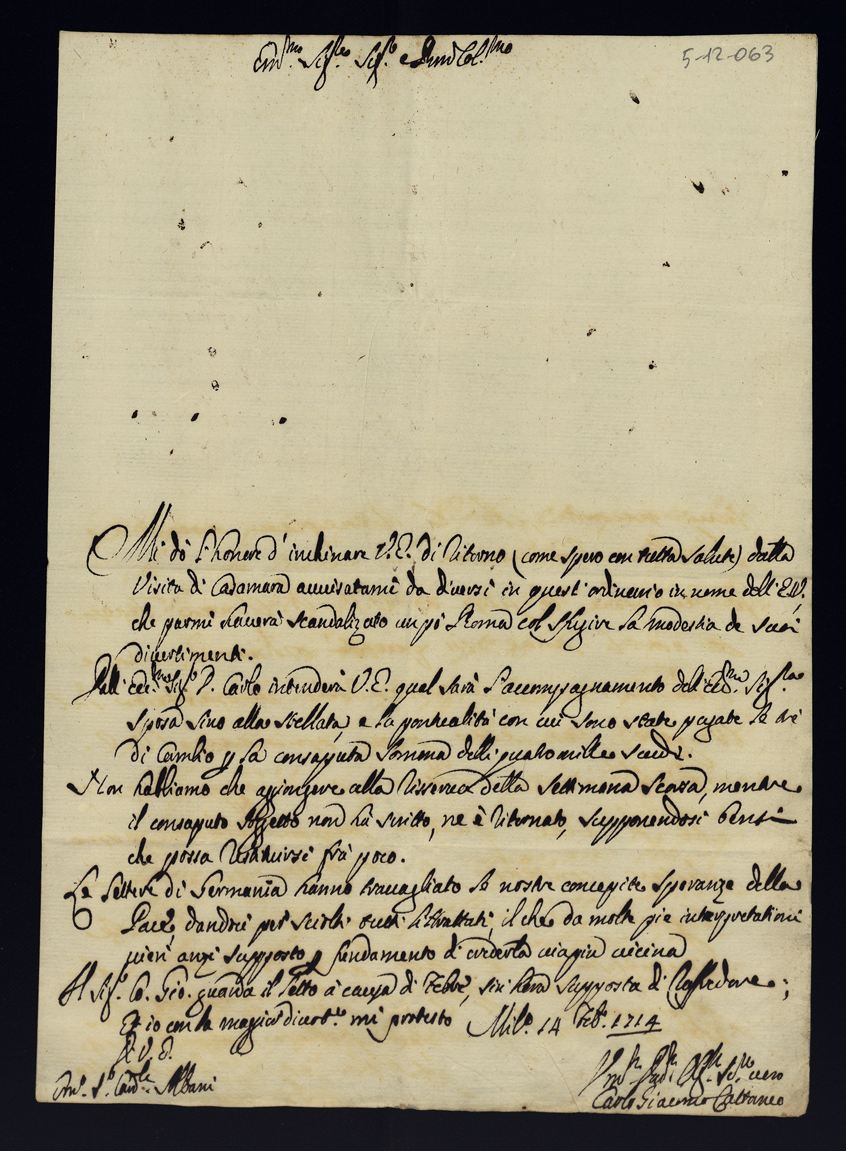 Em.mo Sig.re Sig.r e Pron Col.mo
5-12-063
Mi dò l'honore d'inchinare V.E. di ritorno (come spero con tutta salute) dalla
Visita di Casamara avvisatami da diversi in quest'ordinario in nome dell'E.V.
che parmi haverà scandalizato un pò Roma col la modestia de suoi
divertimenti.
Dall'Ecc.mo Sig.r D. Carlo intenderà V.E. qual sarà l'accompagnamento dell'Ecc.ma Sig.ra
Sposa sino alla stellata, e la pontualità con cui sono state pagate le
di Cambio p la consaputa somma delli quatro mille scudi.
Non habbiamo che aggiongere alla della settimana scorsa, mentre
il consaputo soggetto non hà scritto, ne è ritornato, supponendosi bensi
che possa restituirsi frà poco.
Le lettere di Germania hanno travagliato le nostre concepite speranze della
Pace, dandosi per sciolti tutti li trattati, il che da molte pie interpretationi
vien anzi supposto p fundamento di crederla vicina
Il Sig.r C. Gio. guarda il letto à causa di febre, sin hora supposta di
Et io con la maggior divot.e mi protesto Mil.o 14 Feb.o 1714
D. V. E.
Em. S.r Card.le Albani
Carlo Giacomo Cattaneo